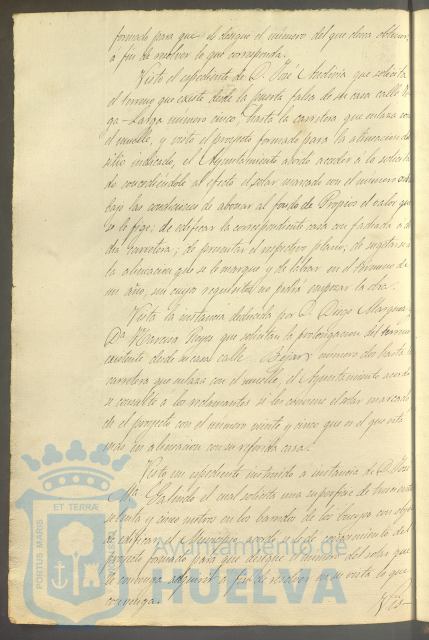 formado para que se designe el número del que desea obtener,
á fin de resolver lo que corresponda.
Visto el espediente de D. José que solicita
el terreno que existe desde la puerta falsa de su casa calle
número cinco hasta la carretera que enlaza con
el muelle, y visto el proyecto formado para la alineacion del
sitio indicado, el Ayuntamiento acordó acceder á lo solicita
do concediéndole al efecto el solar marcado con el número
bajo las condiciones de abonar al fondo de Propios el valor que
se le fije; de edificar la correspondiente casa con fachada á
dha carretera; de presentar el respectivo plano; de sugetarse á
la alineacion que se le marque y de labrar en el término de
un año, sin cuyos requisitos no podrá empezar la obra.
Vista la instancia deducida por D. Diego Marquez y
Dª Reyes que solicitan la prolongacion del terreno
existente desde su casa calle Béjar número dos hasta la
carretera que enlaza con el muelle, el Ayuntamiento acordó
se consulte á los reclamantes si les conviene el solar marcado
en el proyecto con el número veinte y cinco que es el que está
más en alineacion con su referida casa.
Visto un espediente instruido á instancia de D. José
Mª Galindo el cual solicita una superficie de
y cinco metros en los barrios de con objeto
de edificar, el Municipio acordó se le dé conocimiento del
proyecto formado para que designe el número del solar que
le convenga adquirir á fin de resolver en su vista lo que
convenga.
PORTUS MARIS
ET TERRAE
Ayuntamiento de
HUELVA